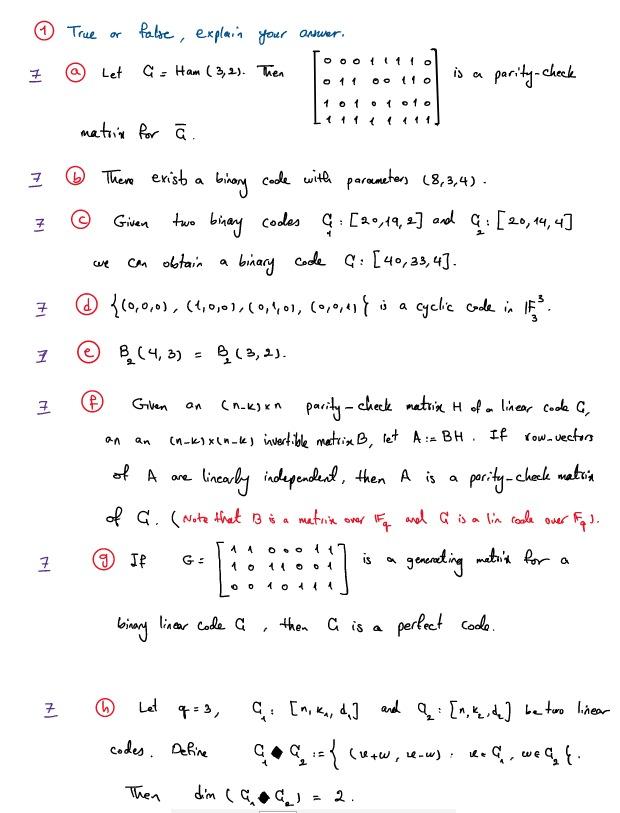 ① True or false, explain your answer.
7 ⓐ Let C = Ham (3,2). Then [ 0 0 0 1 1 1 1 0 is a parity-check
0 1 1 0 0 1 1 0
1 0 1 0 1 0 1 0
1 1 1 1 1 1 1 1 ]
matrix for C̅.
7 ⓑ There exists a binary code with parameters (8,3,4).
7 ⓒ Given two binary codes C₁ : [20,19,2] and C₂ : [20,14,4]
we can obtain a binary code C : [40,33,4].
7 ⓓ {(0,0,0), (1,0,0), (0,1,0), (0,0,1)} is a cyclic code in F₃³.
7 ⓔ B₂(4,3) = B₂(3,2).
7 ⓕ Given an (n-k)×n parity-check matrix H of a linear code C,
an an (n-k)×(n-k) invertible matrix B, let A := BH. If row-vectors
of A are linearly independent, then A is a parity-check matrix
of C. (Note that B is a matrix over F_q and C is a lin code over F_q).
7 ⓖ If G = [ 1 1 0 0 0 1 1 is a generating matrix for a
1 0 1 1 0 0 1
0 0 1 0 1 1 1 ]
binary linear code C, then C is a perfect code.
7 ⓗ Let q = 3, C₁ : [n, k₁, d₁] and C₂ : [n, k₂, d₂] be two linear
codes. Define C₁ ◆ C₂ := { (u+w, u-w) : u ∈ C₁, w ∈ C₂ }.
Then dim ( C₁ ◆ C₂ ) = 2.